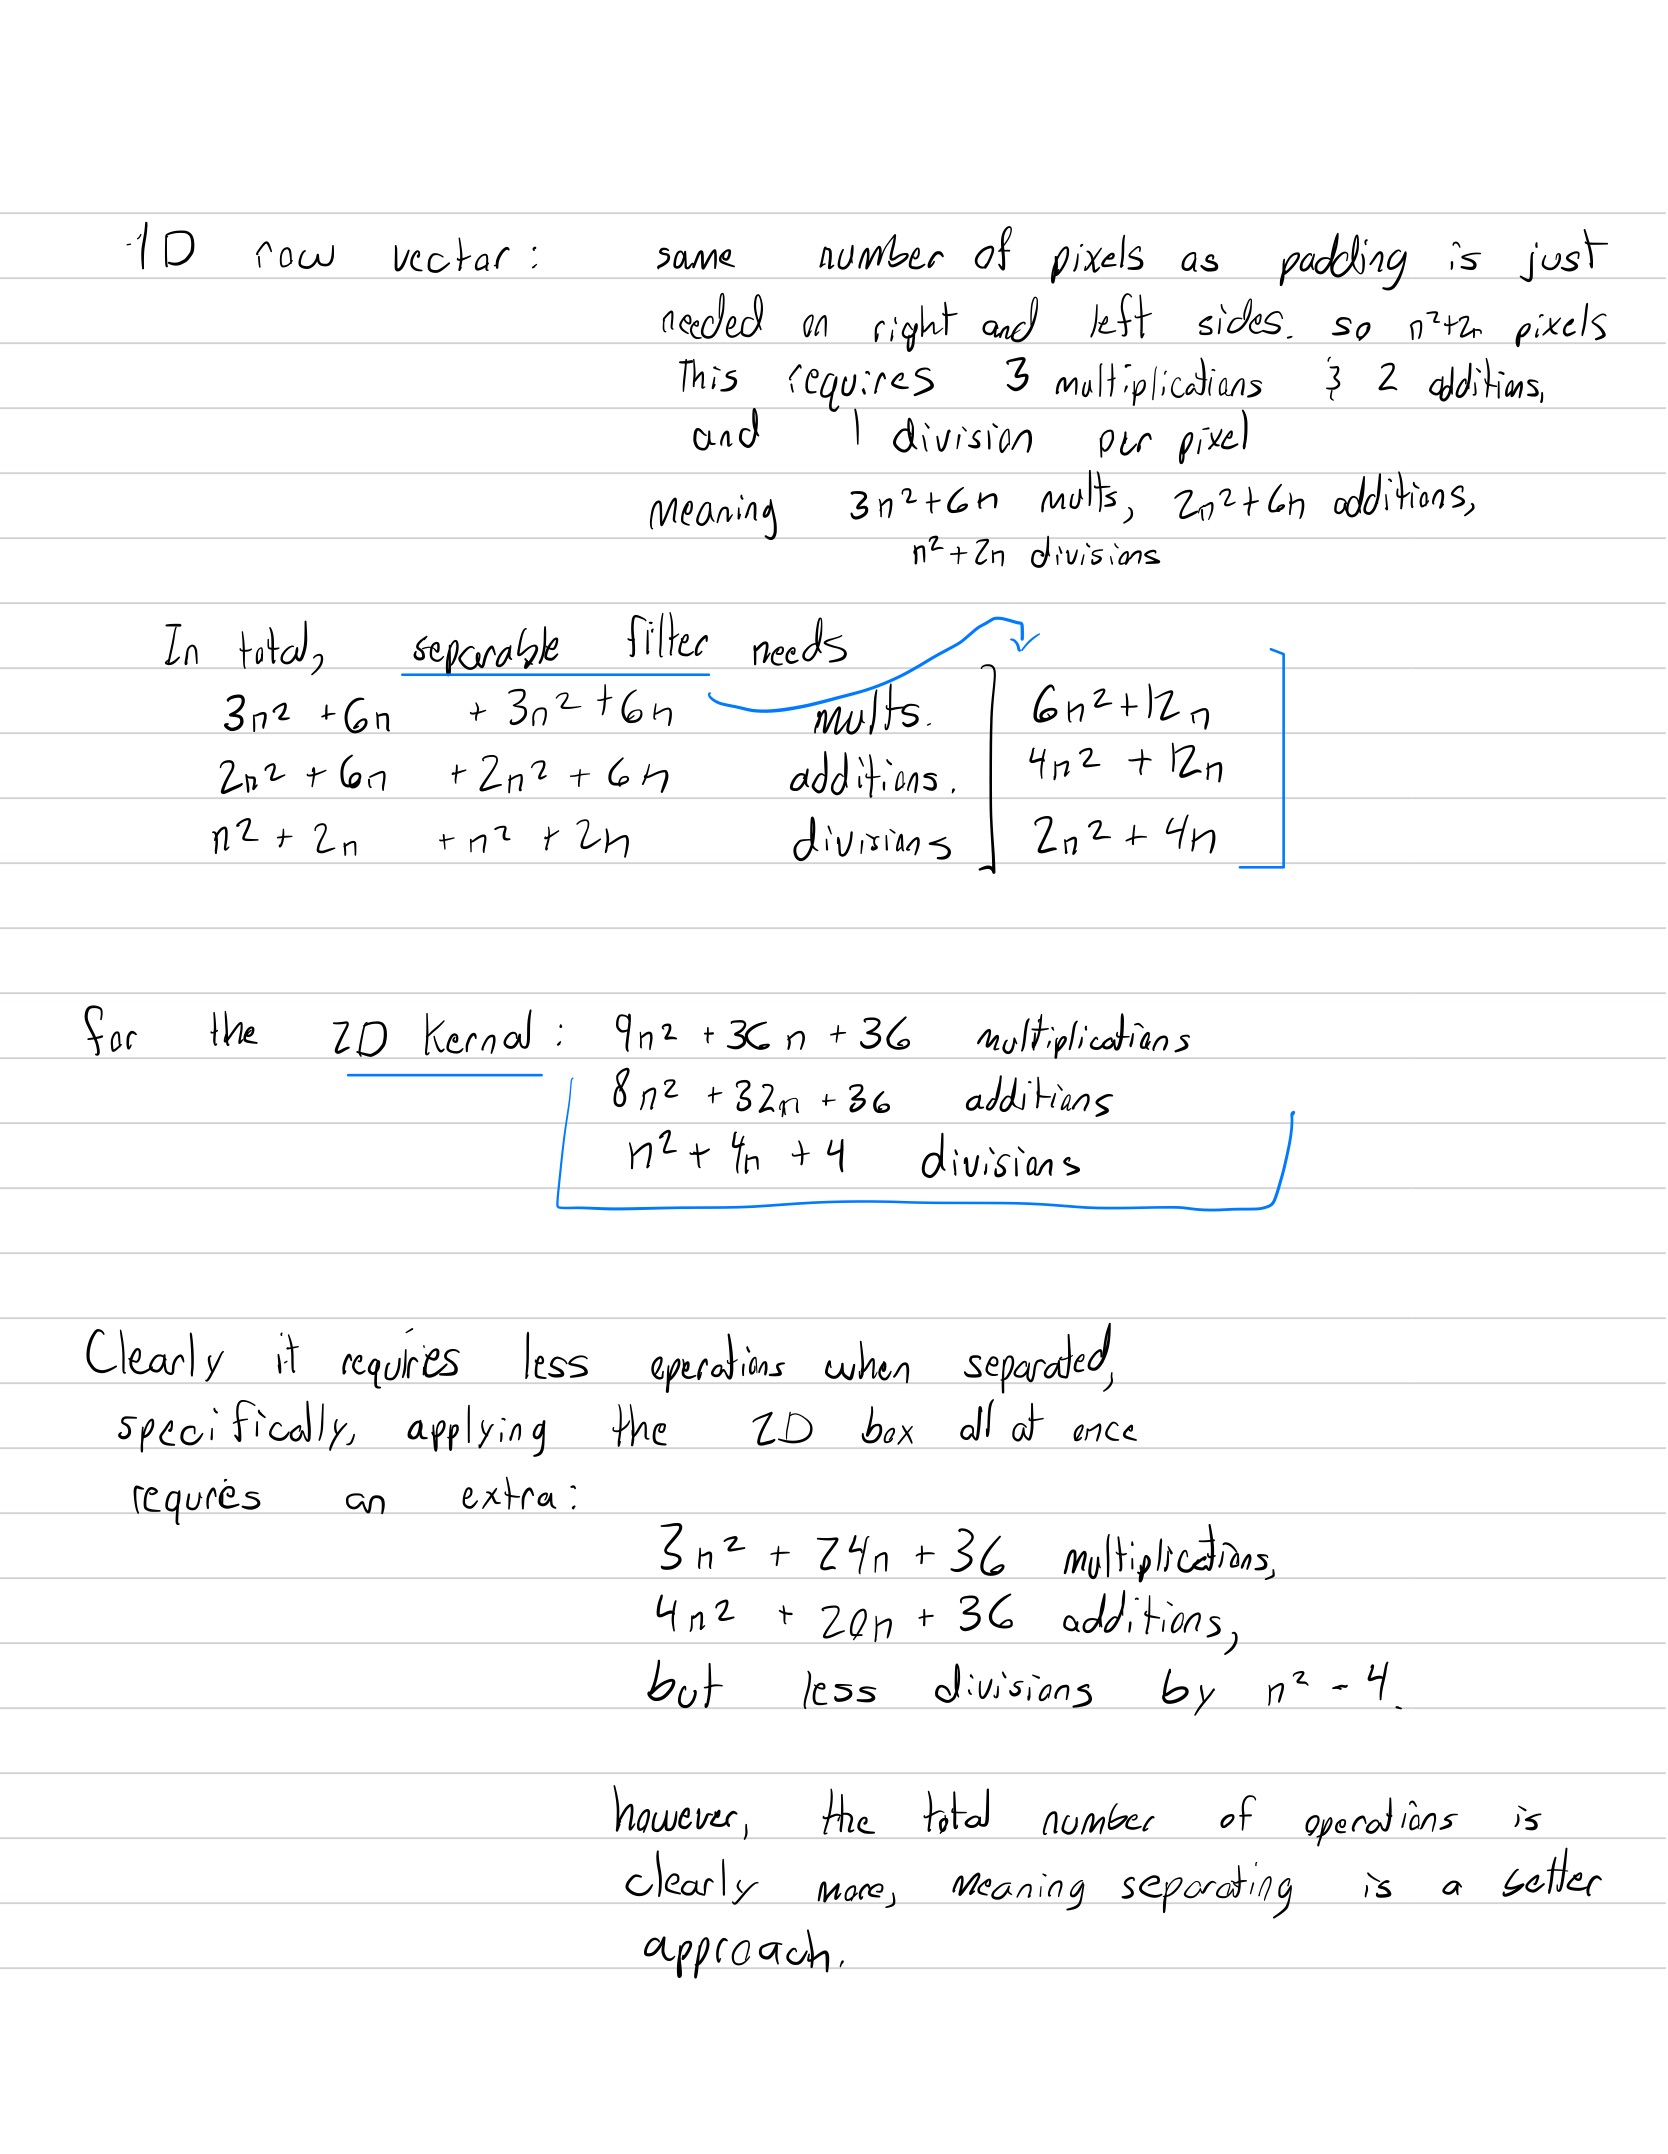 1D row vector: same number of pixels as padding is just
needed on right and left sides. so n²+2n pixels
This requires 3 multiplications & 2 additions,
and 1 division per pixel
Meaning 3n²+6n mults, 2n²+6n additions,
n²+2n divisions
In total, separable filter needs
3n² +6n + 3n² +6n mults. 6n²+12n
2n² + 6n + 2n² + 6n additions. 4n² + 12n
n² + 2n + n² + 2n divisions 2n² + 4n
for the 2D Kernal: 9n² + 36n + 36 multiplications
8n² + 32n + 36 additions
n² + 4n + 4 divisions
Clearly it requries less operations when separated,
specifically, applying the 2D box all at once
requres an extra:
3n² + 24n + 36 multiplications,
4n² + 20n + 36 additions,
but less divisions by n² - 4.
however, the total number of operations is
clearly more, meaning separating is a better
approach.